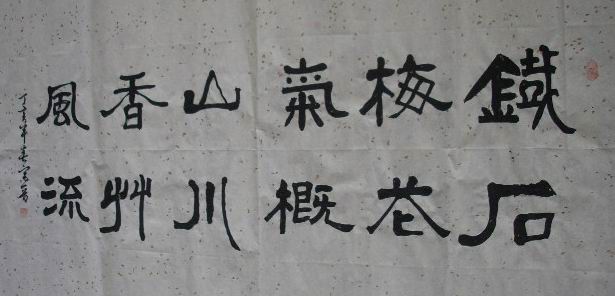 鐵石
梅花
氣概
山川
香艸
風流